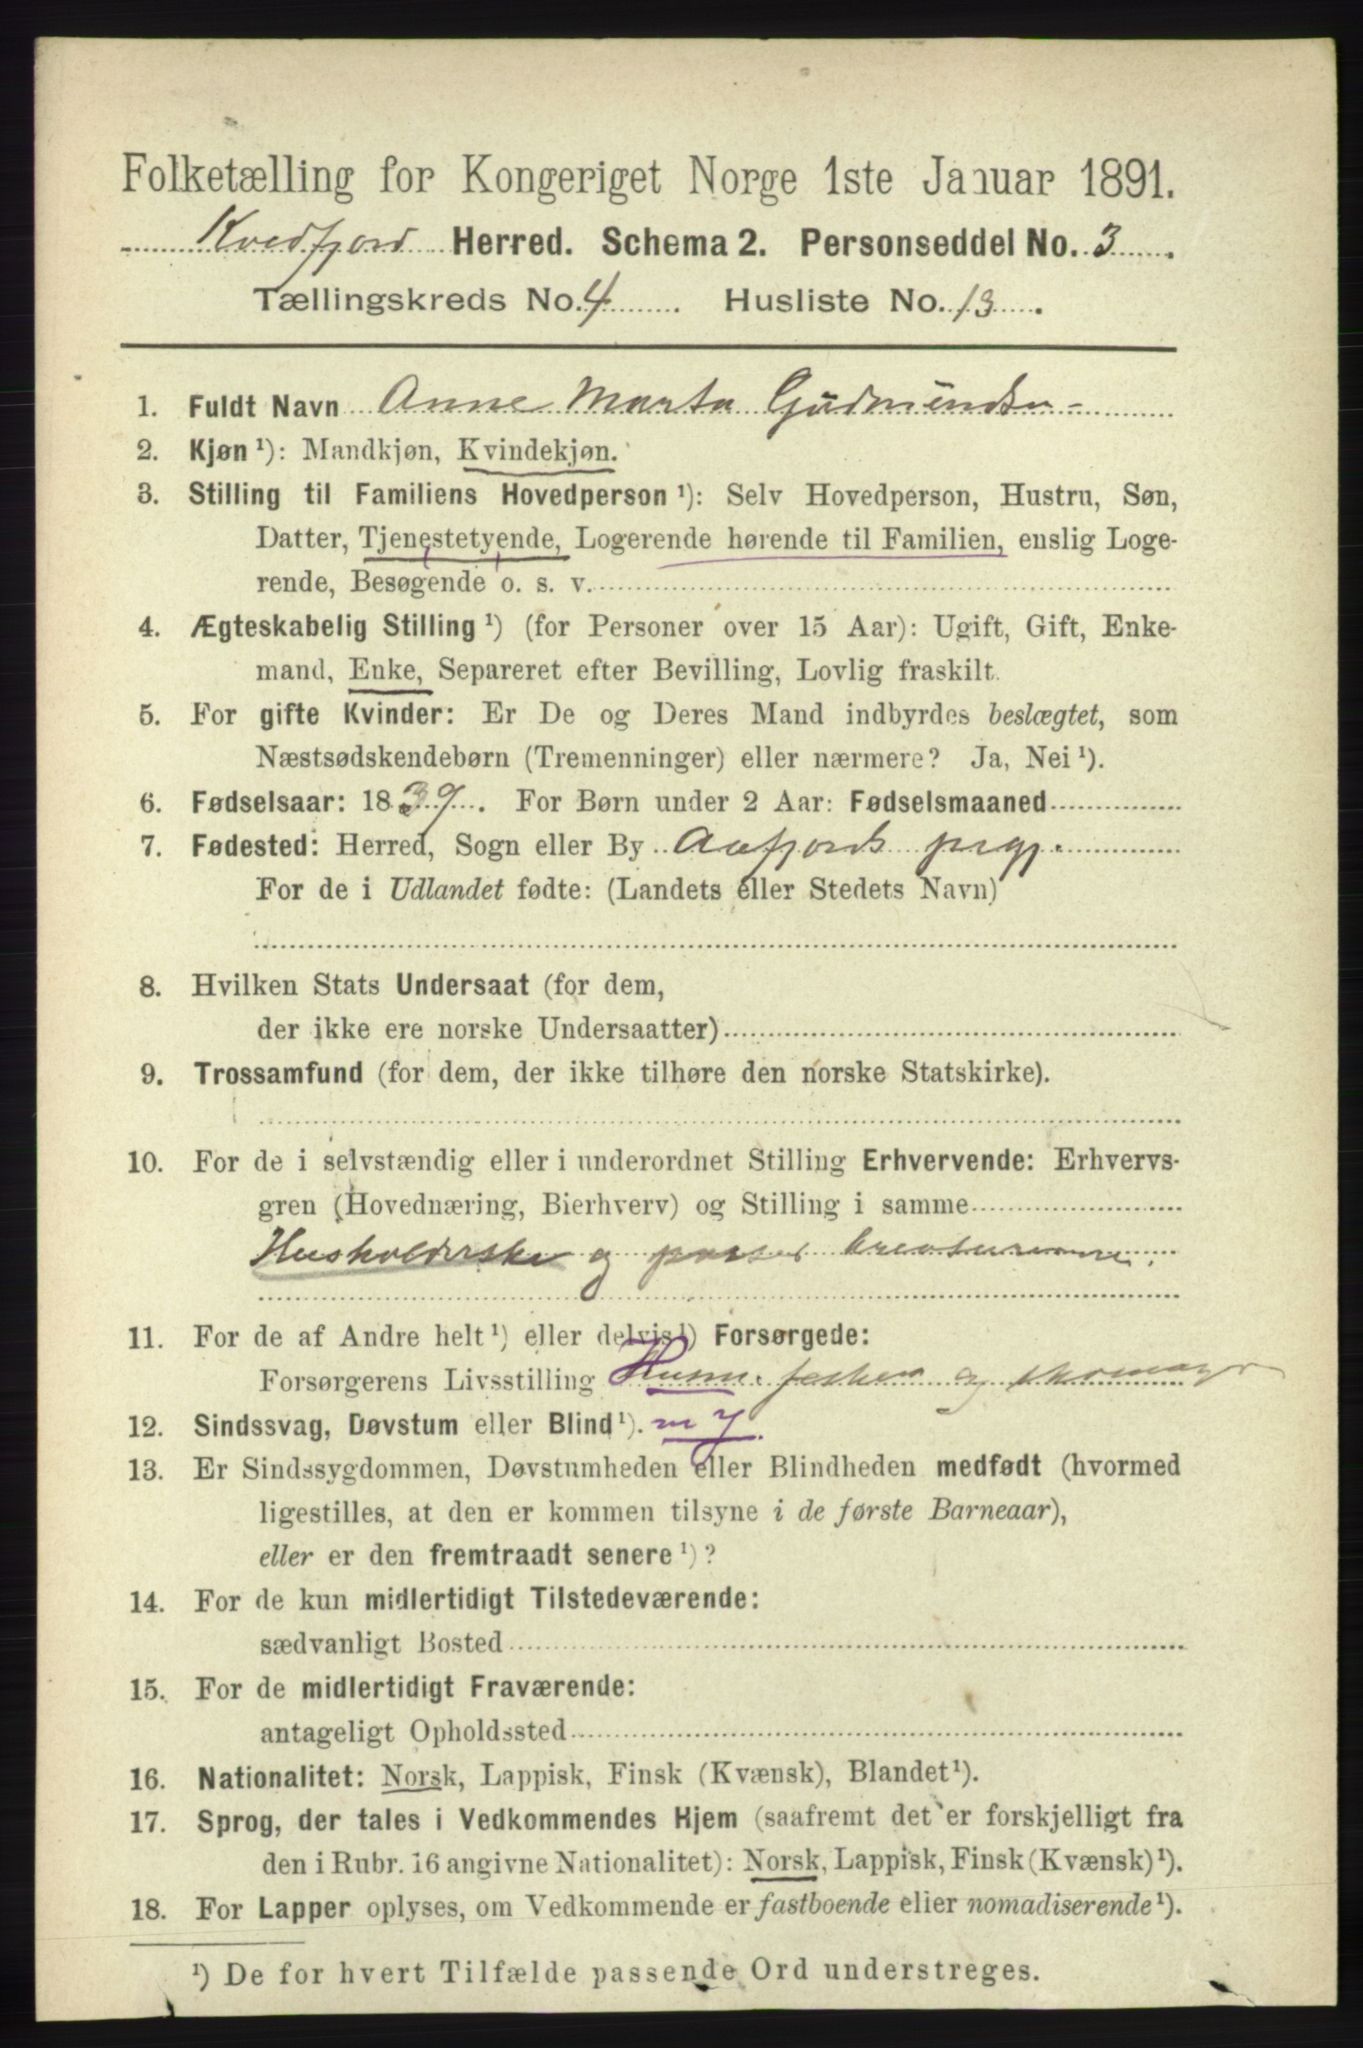 Folketælling for Kongeriget Norge 1ste Januar 1891.
Kvedfjord Herred. Schema 2. Personseddel No. 3.
Tællingskreds No. 4. Husliste No. 13.
1. Fuldt Navn Anne Marta
2. Kjøn ¹): Mandkjøn, Kvindekjøn.
3. Stilling til Familiens Hovedperson ¹): Selv Hovedperson, Hustru, Søn,
Datter, Tjenestetyende, Logerende hørende til Familien, enslig Loge-
rende, Besøgende o. s. v.
4. Ægteskabelig Stilling ¹) (for Personer over 15 Aar): Ugift, Gift, Enke-
mand, Enke, Separeret efter Bevilling, Lovlig fraskilt.
5. For gifte Kvinder: Er De og Deres Mand indbyrdes beslægtet, som
Næstsødskendebørn (Tremenninger) eller nærmere? Ja, Nei ¹).
6. Fødselsaar: 1839. For Børn under 2 Aar: Fødselsmaaned
7. Fødested: Herred, Sogn eller By Aafjords prgj.
For de i Udlandet fødte: (Landets eller Stedets Navn)
8. Hvilken Stats Undersaat (for dem,
der ikke ere norske Undersaatter)
9. Trossamfund (for dem, der ikke tilhøre den norske Statskirke).
10. For de i selvstændig eller i underordnet Stilling Erhvervende: Erhvervs-
gren (Hovednæring, Bierhverv) og Stilling i samme
Husholderske og passer kreaturerne.
11. For de af Andre helt ¹) eller delvis ¹) Forsørgede:
Forsørgerens Livsstilling Husm. fisker og skomager
12. Sindssvag, Døvstum eller Blind ¹).
13. Er Sindssygdommen, Døvstumheden eller Blindheden medfødt (hvormed
ligestilles, at den er kommen tilsyne i de første Barneaar),
eller er den fremtraadt senere ¹)?
14. For de kun midlertidigt Tilstedeværende:
sædvanligt Bosted
15. For de midlertidigt Fraværende:
antageligt Opholdssted
16. Nationalitet: Norsk, Lappisk, Finsk (Kvænsk), Blandet ¹).
17. Sprog, der tales i Vedkommendes Hjem (saafremt det er forskjelligt fra
den i Rubr. 16 angivne Nationalitet): Norsk, Lappisk, Finsk (Kvænsk) ¹).
18. For Lapper oplyses, om Vedkommende er fastboende eller nomadiserende ¹).
¹) De for hvert Tilfælde passende Ord understreges.